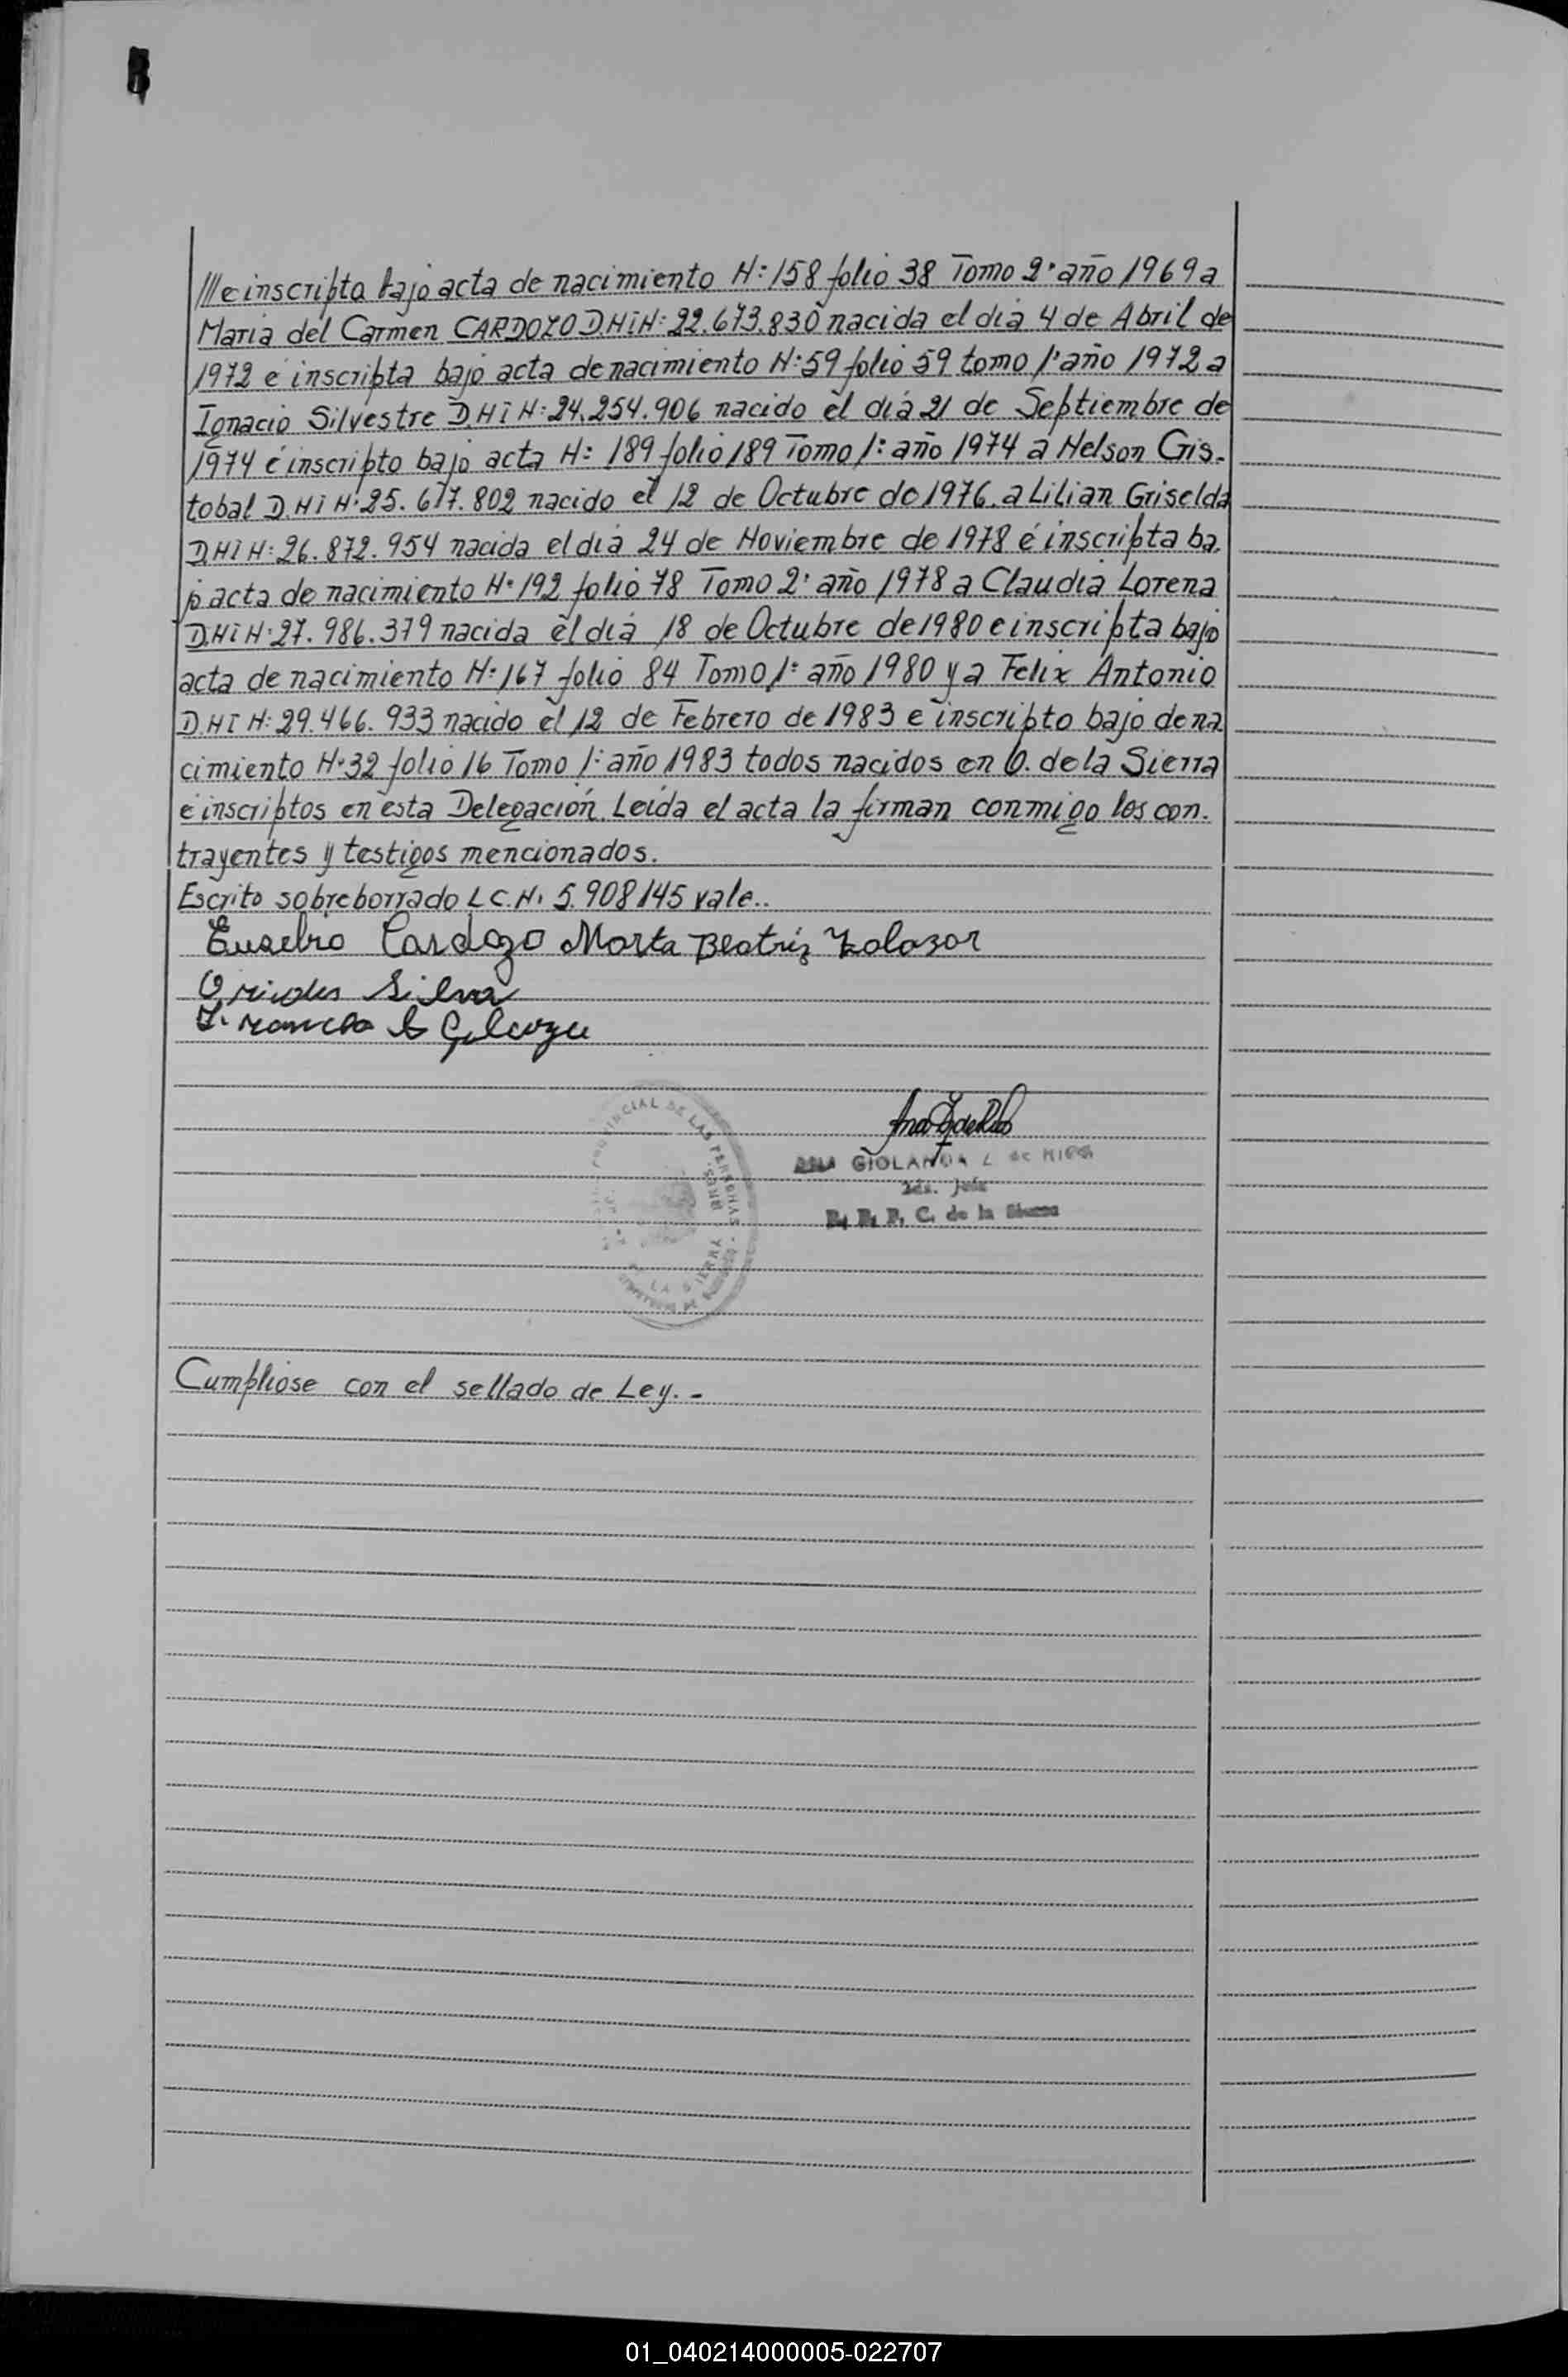 ///e inscripta bajo acta de nacimiento N: 158 folio 38 Tomo 2º año 1969 a
Maria del Carmen CARDOZO D.N.I N: 22.673.830 nacida el dia 4 de Abril de
1972 é inscripta bajo acta de nacimiento N: 59 folio 59 tomo 1º año 1972 a
Ignacio Silvestre D.N.I N: 24.254.906 nacido el dia 21 de Septiembre de
1974 é inscripto bajo acta N: 189 folio 189 Tomo 1: año 1974 a Nelson Cris-
tobal D.N.I N: 25.617.802 nacido el 12 de Octubre de 1976. a Lilian Griselda
D.N.I N: 26.872.954 nacida el dia 24 de Noviembre de 1978 é inscripta ba.
jo acta de nacimiento N: 192 folio 78 Tomo 2º año 1978 a Claudia Lorena
D.N.I N: 27.986.379 nacida el dia 18 de Octubre de 1980 e inscripta bajo
acta de nacimiento N: 167 folio 84 Tomo 1: año 1980 y a Felix Antonio
D.N.I N: 29.466.933 nacido el 12 de Febrero de 1983 e inscripto bajo de na
cimiento N: 32 folio 16 Tomo 1: año 1983 todos nacidos en C. de la Sierra
é inscriptos en esta Delegación. Leida el acta la firman conmigo los con.
trayentes y testigos mencionados.
Escrito sobre borrado L.C.N: 5.908145 vale..
Eusebio Cardozo Marta Beatriz Zalazar
Silva
PROVINCIAL DE LAS PERSONAS
DE LA SIERRA
GIOLANDA L de RIOS
Jefe
R. P. P. C. de la Sierra
Cumpliose con el sellado de Ley. -
01_040214000005-022707